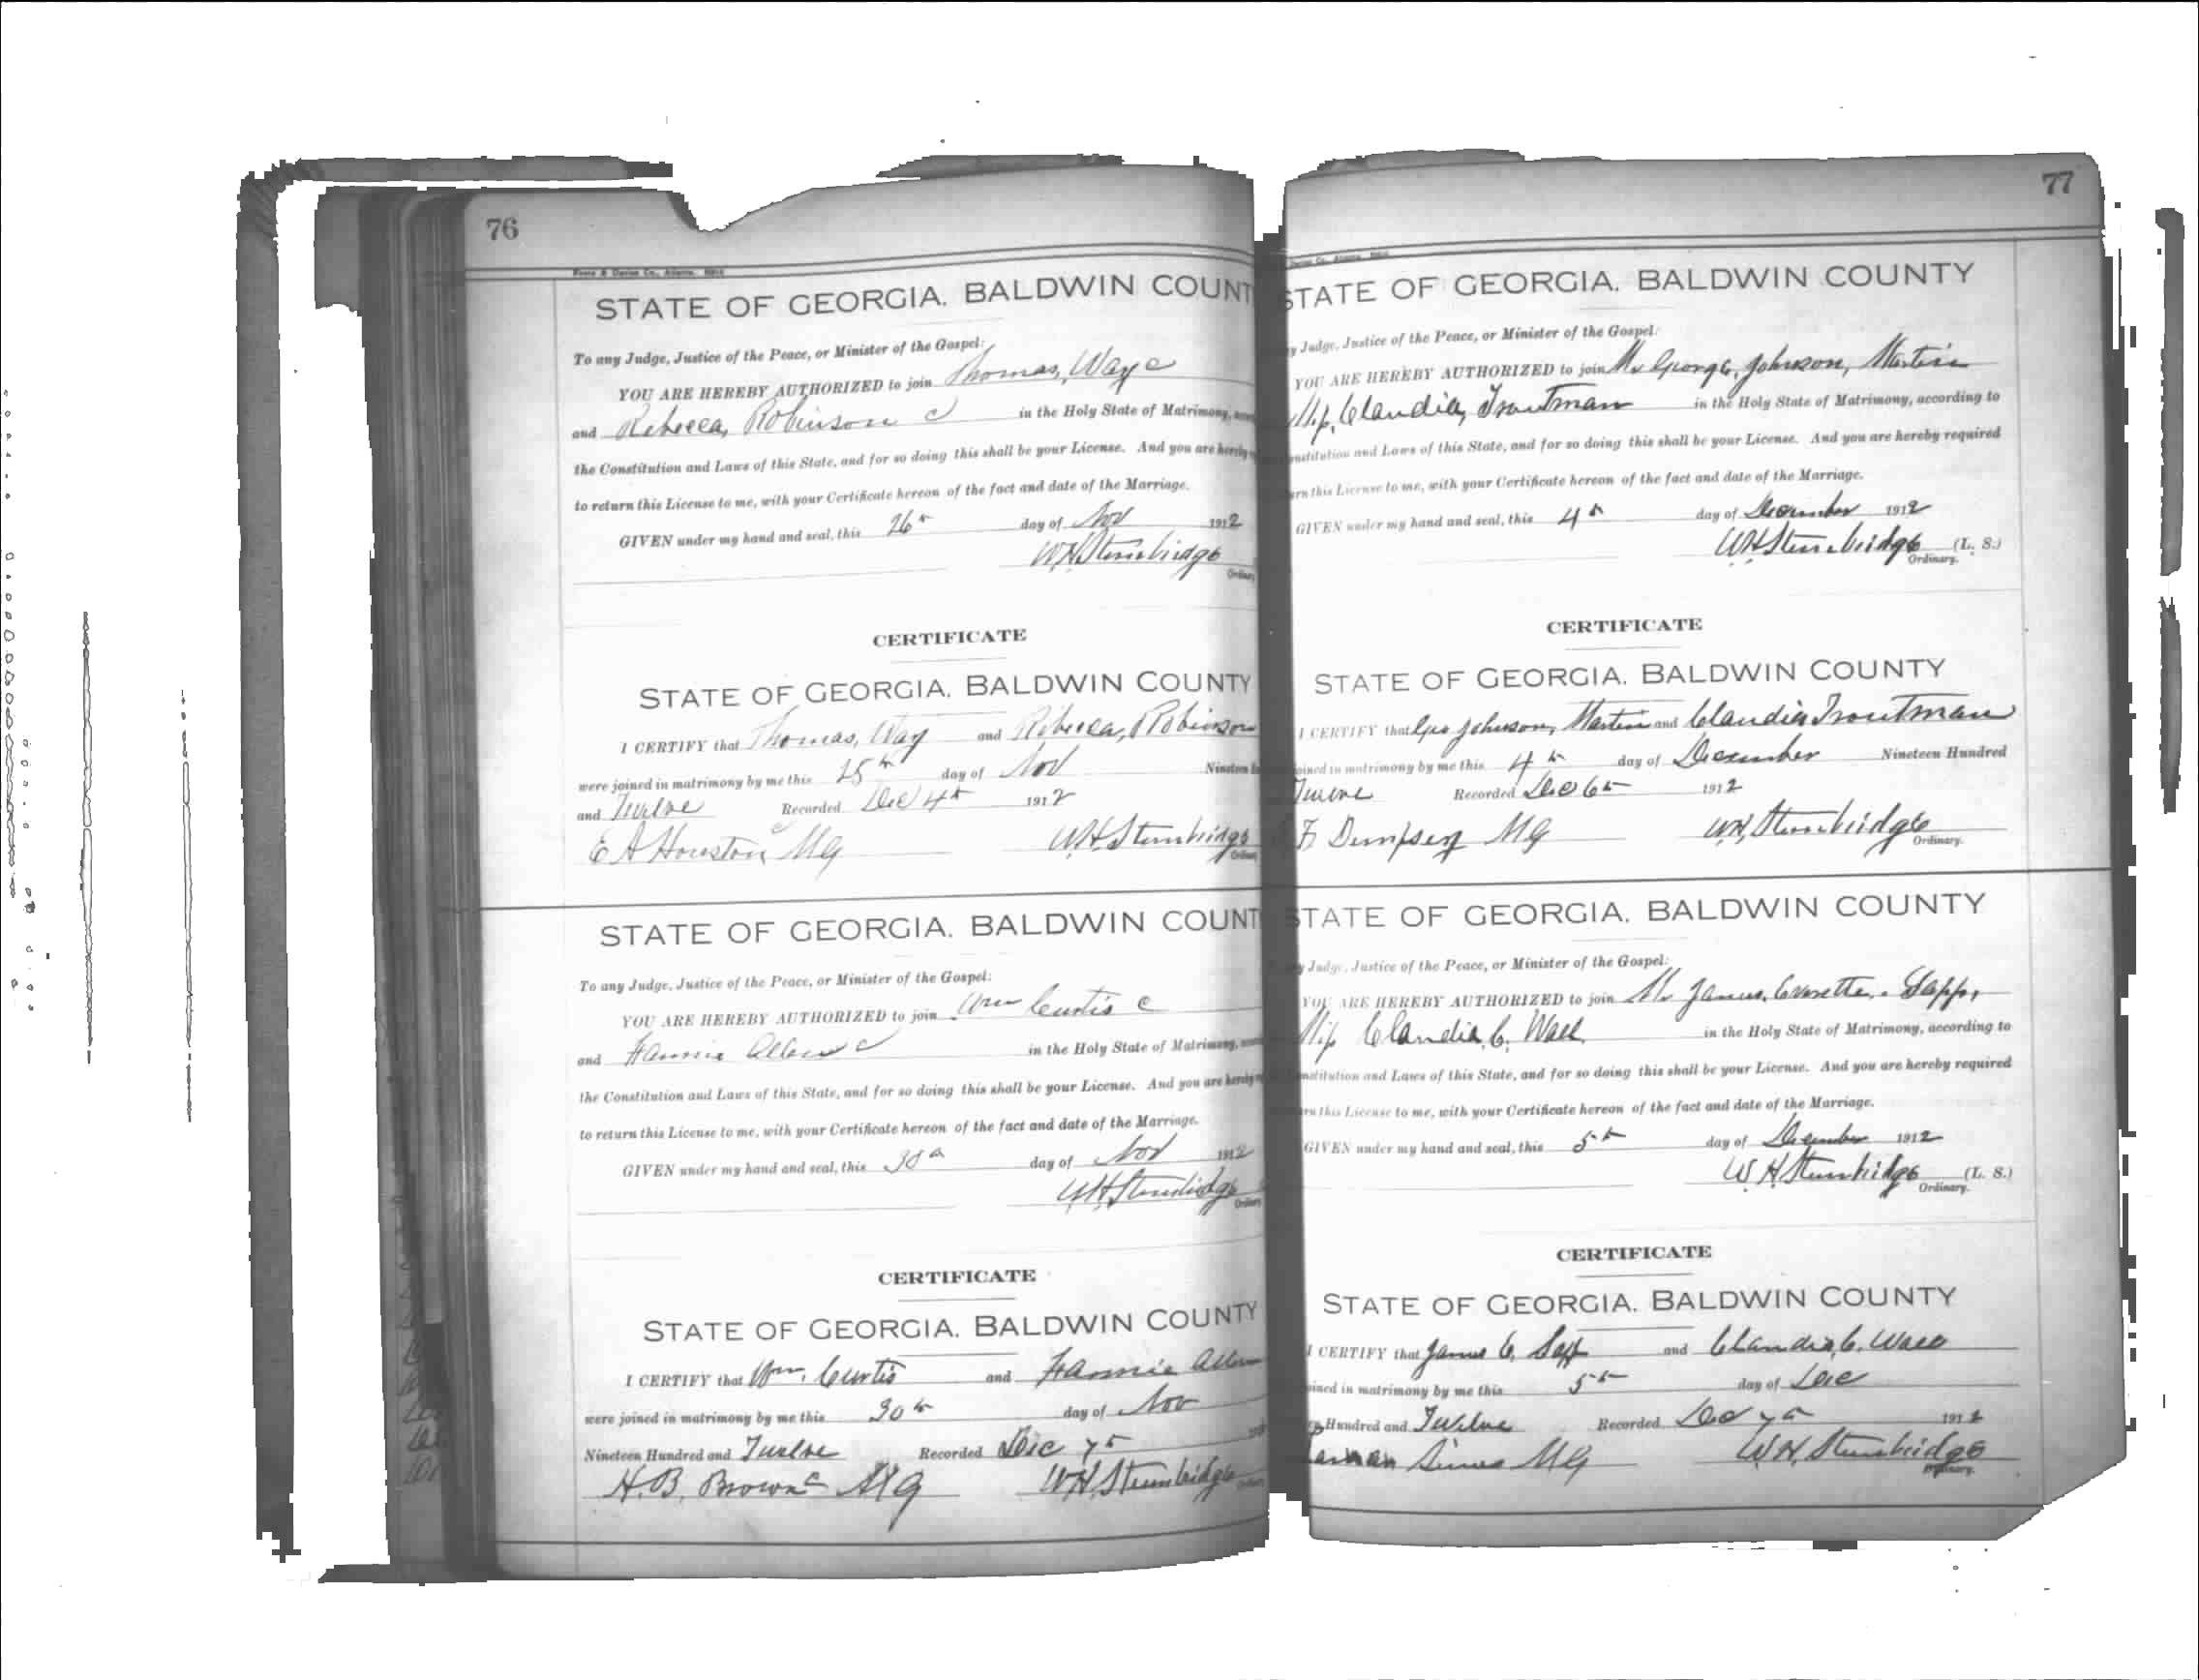 76
STATE OF GEORGIA. BALDWIN COUNT
To any Judge, Justice of the Peace, or Minister of the Gospel:
YOU ARE HEREBY AUTHORIZED to join Thomas, Way c
and Rebecca, Robinson c in the Holy State of Matrimony,
the Constitution and Laws of this State, and for so doing this shall be your License. And you are hereby
to return this License to me, with your Certificate hereon of the fact and date of the Marriage.
GIVEN under my hand and seal, this 26th day of Nov 1912
W.H. Stembridge
Ordinary
CERTIFICATE
STATE OF GEORGIA. BALDWIN COUNTY
I CERTIFY that Thomas, Way and Rebecca, Robinson
were joined in matrimony by me this 25th day of Nov Nineteen
and Twelve Recorded Dec 4th 1912
E A Houston, MG W.H. Stembridge
Ordinary
STATE OF GEORGIA. BALDWIN COUNT
To any Judge, Justice of the Peace, or Minister of the Gospel:
YOU ARE HEREBY AUTHORIZED to join Wm Curtis c
and Fannie Allen c in the Holy State of Matrimony,
the Constitution and Laws of this State, and for so doing this shall be your License. And you are hereby
to return this License to me, with your Certificate hereon of the fact and date of the Marriage.
GIVEN under my hand and seal, this 30th day of Nov 1912
W.H. Stembridge
Ordinary
CERTIFICATE
STATE OF GEORGIA. BALDWIN COUNTY
I CERTIFY that Wm. Curtis and Fannie Allen
were joined in matrimony by me this 30th day of Nov
Nineteen Hundred and Twelve Recorded Dec 7th
H.B. Brown MG W.H. Stembridge
77
STATE OF GEORGIA. BALDWIN COUNTY
Judge, Justice of the Peace, or Minister of the Gospel:
YOU ARE HEREBY AUTHORIZED to join Mr George, Johnson, Martin
Miss, Claudia, Troutman in the Holy State of Matrimony, according to
nstitution and Laws of this State, and for so doing this shall be your License. And you are hereby required
urn this License to me, with your Certificate hereon of the fact and date of the Marriage.
GIVEN under my hand and seal, this 4th day of December 1912
W.H. Stembridge (L. S.)
Ordinary.
CERTIFICATE
STATE OF GEORGIA. BALDWIN COUNTY
I CERTIFY that Geo Johnson, Martin and Claudia Troutman
oined in matrimony by me this 4th day of December Nineteen Hundred
Twelve Recorded Dec 6th 1912
F Dempsey MG W.H. Stembridge
Ordinary.
STATE OF GEORGIA. BALDWIN COUNTY
Judge, Justice of the Peace, or Minister of the Gospel:
YOU ARE HEREBY AUTHORIZED to join Mr James, Everette, Sapp,
Miss Claudia, C. Wall in the Holy State of Matrimony, according to
nstitution and Laws of this State, and for so doing this shall be your License. And you are hereby required
urn this License to me, with your Certificate hereon of the fact and date of the Marriage.
GIVEN under my hand and seal, this 5th day of December 1912
W.H. Stembridge (L. S.)
Ordinary.
CERTIFICATE
STATE OF GEORGIA. BALDWIN COUNTY
I CERTIFY that James E. Sapp and Claudia, C. Wall
oined in matrimony by me this 5th day of Dec
Hundred and Twelve Recorded Dec 7th 1912
Sims MG W.H. Stembridge
Ordinary.